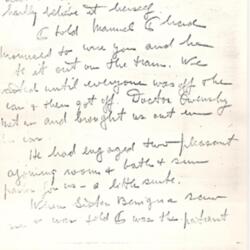 hardly believe it herself
I told Manuel I had
promised to wire you and he
to it out on the train. We
until everyone was off the
car & then got off. Doctor Owensby
met us and brought us out in
car.
He had engaged two pleasant
ajoining rooms & bath & sun
for us - a little suite.
When Sister Benigna saw
was told I was the patient